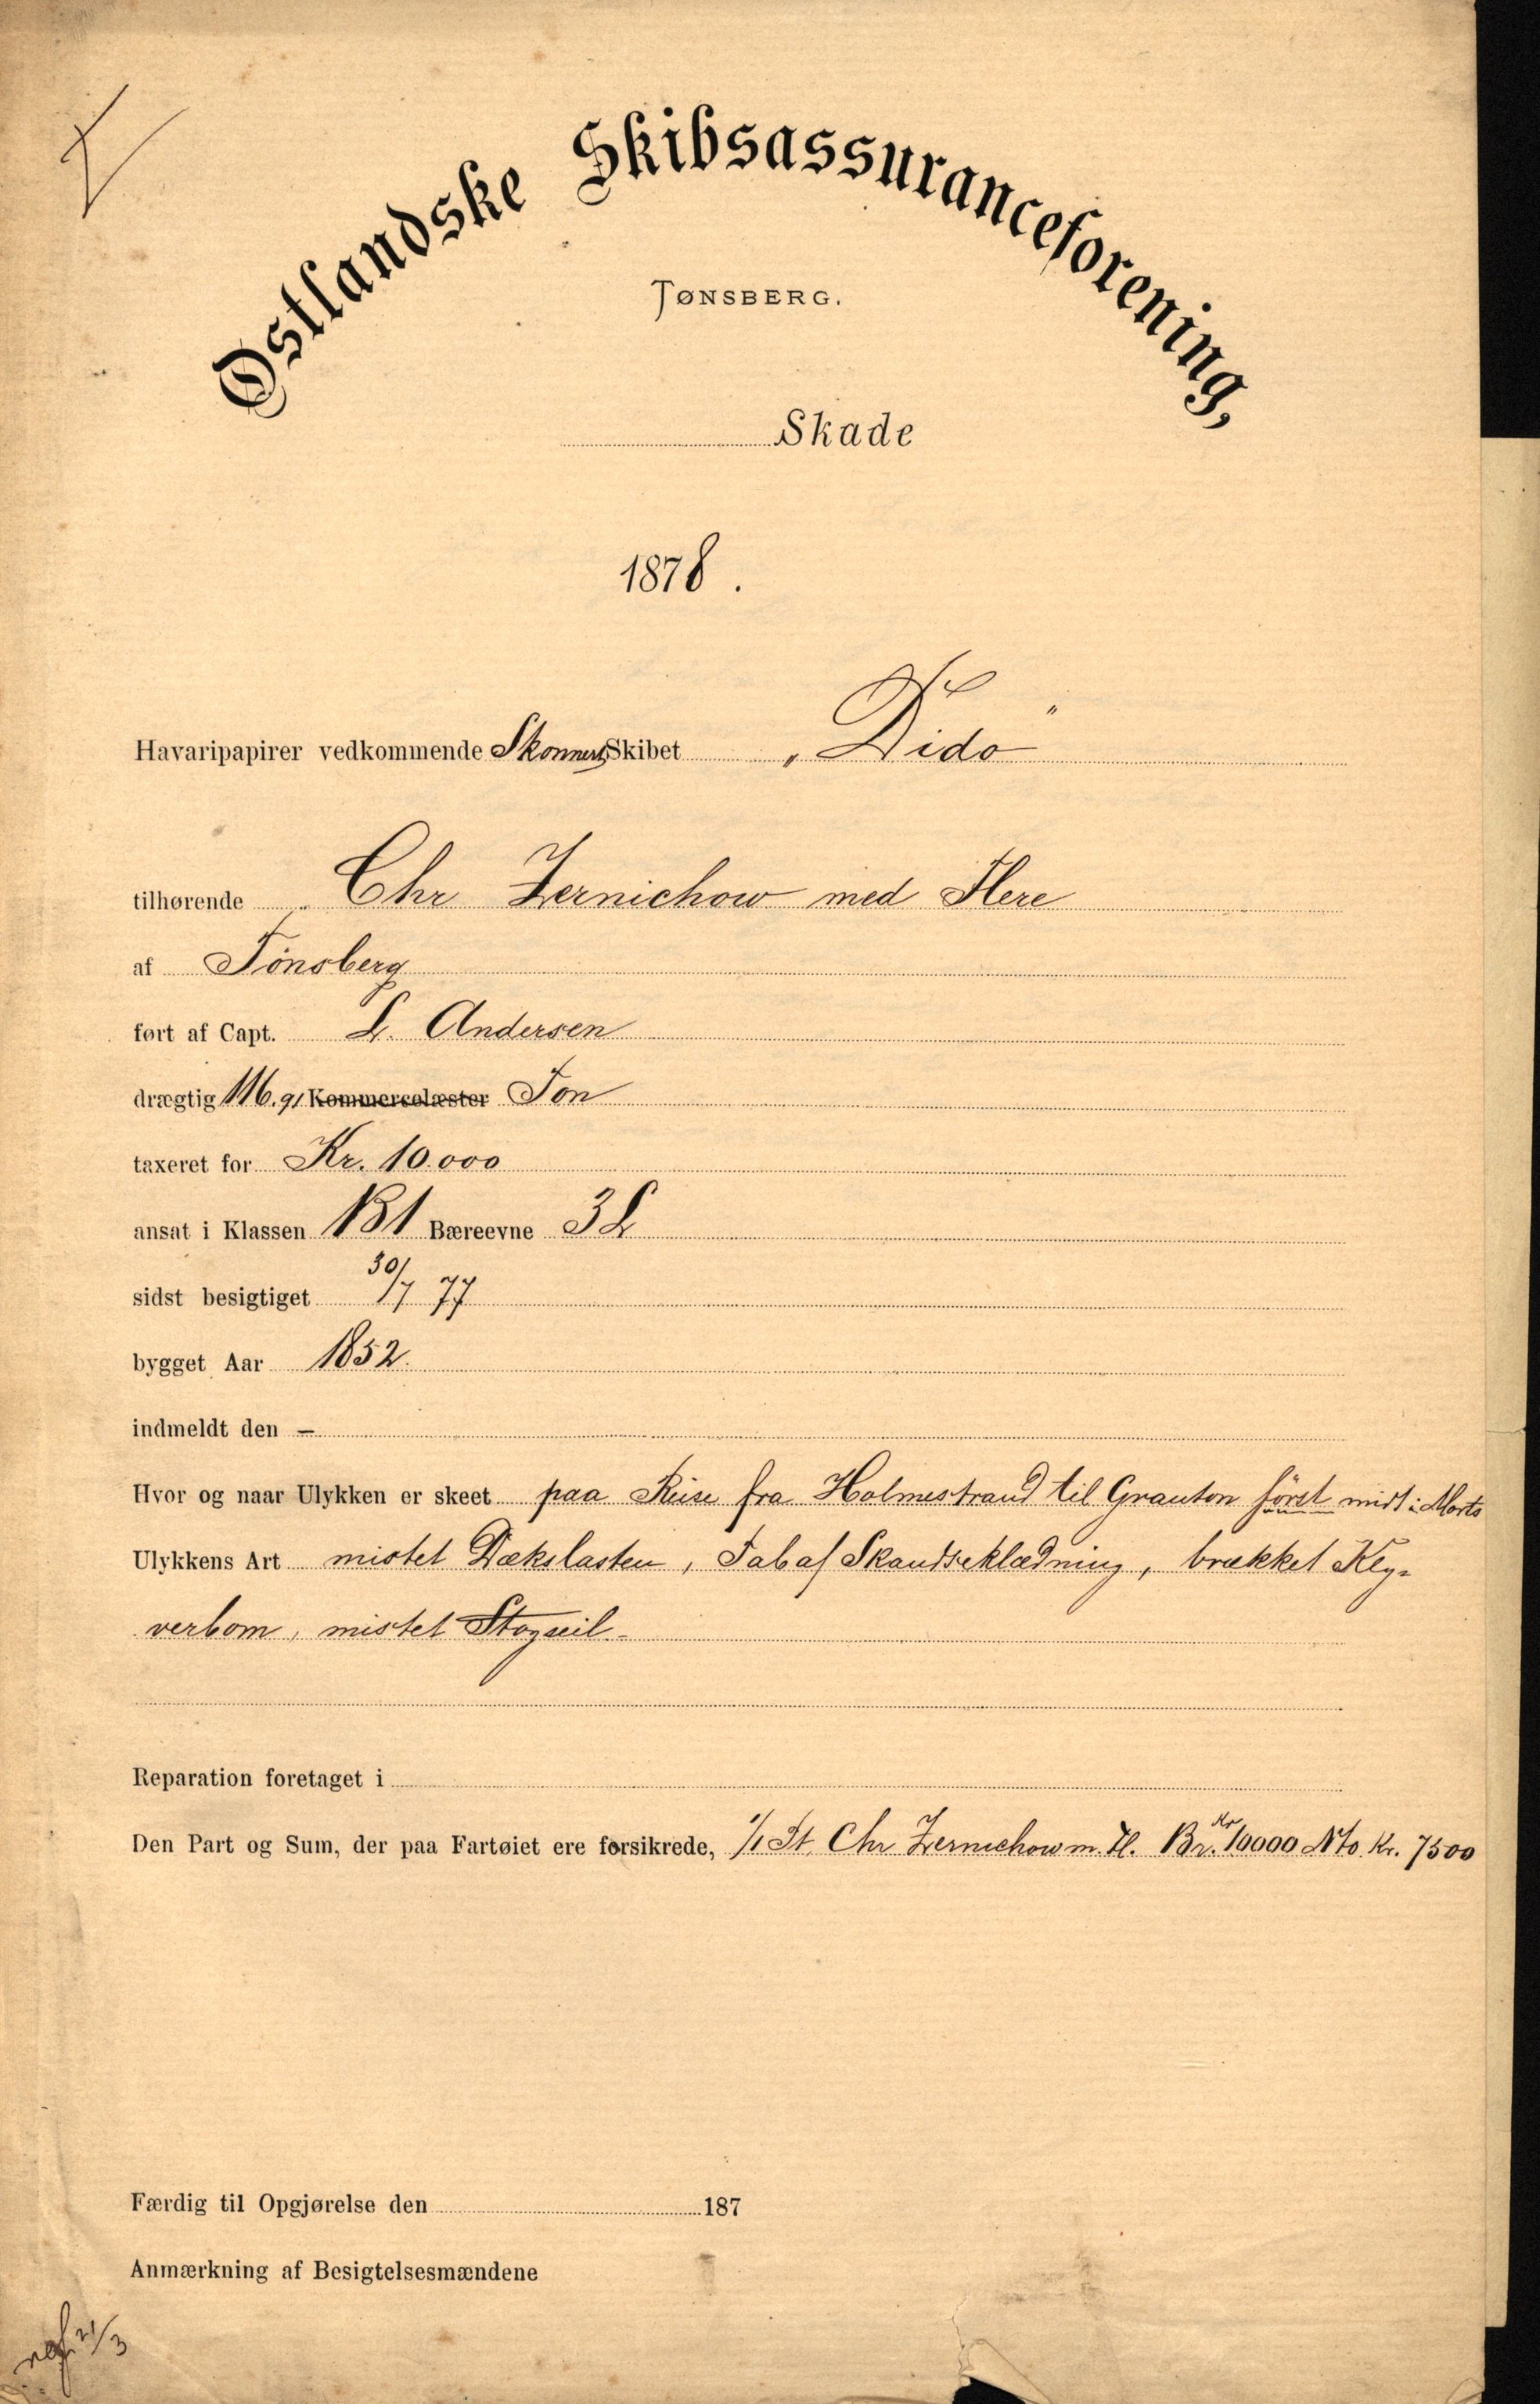 Østlandske Skibsassuranceforening,
TØNSBERG.
Skade
1878.
Havaripapirer vedkommende Skonnert Skibet „Dido"
tilhørende Chr Zernichow med Flere
af Tönsberg
ført af Capt. L. Andersen
drægtig 116.91 Kommercelæster Ton
taxeret for Kr. 10.000
ansat i Klassen B1 Bæreevne 3L
sidst besigtiget 30/7 77
bygget Aar 1852.
indmeldt den –
Hvor og naar Ulykken er skeet paa Reise fra Holmestrand til Granton först midt i Marts
Ulykkens Art mistet Dækslasten, Tab af Skandseklædning, brækket Kly-
verbom, mistet Stagseil
Reparation foretaget i
Den Part og Sum, der paa Fartøiet ere forsikrede, 1/1 St. Chr Zernichow m. Fl. Br. Kr 10000 Nto. Kr. 7500
Færdig til Opgjørelse den 187
Anmærkning af Besigtelsesmændene
21/3